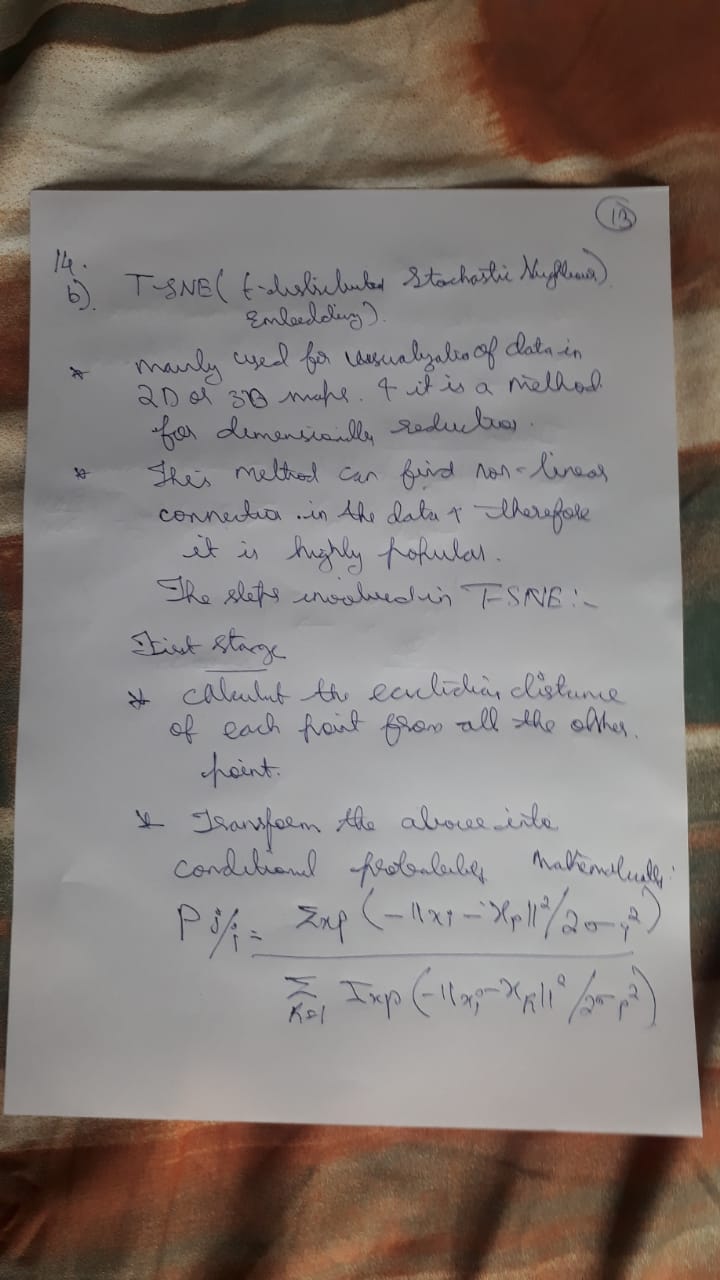 13
14.
b). T-SNE ( t-distributed Stochastic Neighbour)
Embedding).
* mainly used for visualization of data in
2D or 3D maps. & it is a method
for dimensionally reduction.
* This method can find non-linear
connection in the data & therefore
it is highly popular.
The steps involved in T-SNE :-
First Stage
* calculat the euclidian distance
of each point from all the other.
point.
* Transform the above into
conditional probability mathematically:
P j/i = Exp (-||xi - xj||²/2σi²)
Σ K≠i Exp (-||xi - xK||²/2σi²)